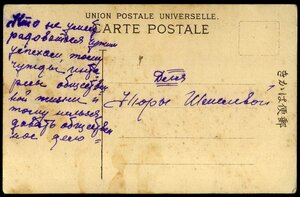 UNION POSTALE UNIVERSELLE.
CARTE POSTALE
Кто не умеет
радоваться чужим
успехам, тому
чужды инте-
ресы обществен
ной жизни и
тому нельзя
давать обществен
ное дело
Для
Норы Шепелевой
きかは便郵